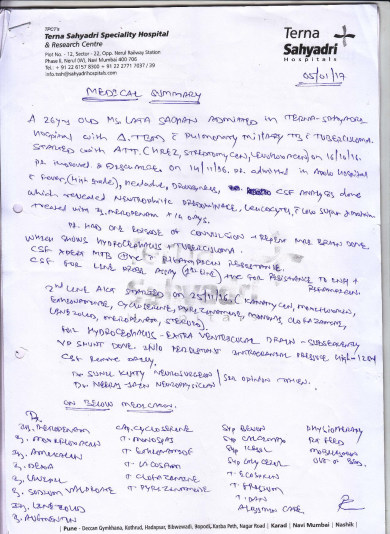 TPCT's
Terna Sahyadri Speciality Hospital
& Research Centre
Plot No. - 12, Sector - 22, Opp. Nerul Railway Station
Phase II, Nerul (W), Navi Mumbai 400 706
Tel.: + 91 22 6157 8300 + 91 22 2771 7037 / 39
info.tssh@sahyadrihospitals.com
Terna
Sahyadri
Hospitals
05/01/17
MEDICAL SUMMARY
A 26 yrs OLD Ms. LATA SACHAN ADMITTED in TERNA-SAHYADRI
Hospital with Δ. TBM & Pulmonary military TB & TUBERCULOMA.
STARTED with ATT. (HREZ, STREPTOMYCIN, Levofloxacin) on 16/10/16.
Pt. improved & Discharged on 14/11/16. Pt. admitted in Apollo Hospital
& Fever (High grade), Headache, Drowsiness, CSF ANALYSIS done
which revealed NEUTROPHILIC PREDOMINANCE, Leucocyte, & low sugar & protein
treated with Inj. MEROPENEM 10 days.
Pt. HAD ONE EPISODE OF CONVULSION & REPEAT MRI BRAIN DONE
WHICH SHOWS HYDROCEPHALUS & TUBERCULOMA.
CSF XPERT MTB & RIFAMPICIN RESISTANCE.
CSF FOR LINE PROBE ASSAY (1st Line) +VE FOR RESISTANCE TO INH &
RIFAMPICIN.
2nd LINE AKT STARTED on 25/11/16. (KANAMYCIN, MOXIFLOXACIN,
ETHIONAMIDE, CYCLOSERINE, PYRAZINAMIDE, CLOFAZIMINE,
LINEZOLID, MEROPENEM, STEROID)
FOR HYDROCEPHALUS - EXTRA VENTRICULAR DRAIN - SUBSEQUENTLY
VP SHUNT DONE PERSISTENT INTRACRANIAL PRESSURE HIGH
CSF Remove daily.
Dr SUNIL KUTTY NEUROSURGEON
Dr NEERAJ JAIN NEUROPHYSICIAN
OPINION TAKEN.
ON BELOW MEDICATION.
Inj. MEROPENEM CAP. CYCLOSERINE Syp PHYSIOTHERAPY
Inj. MOXIFLOXACIN T. Syp RT FEED
Inj. AMIKACIN T. ETHIONAMIDE Syp MOBILISATION
Inj. DEXA T. Syp OUT OF BED.
Inj. T. CLOFAZIMINE T.
Inj. SODIUM VALPROATE T. PYRAZINAMIDE T.
Inj. LINEZOLID T.
Inj. AUGMENTIN CARE
Pune - Deccan Gymkhana, Kothrud, Hadapsar, Bibwewadi, Bopodi, Kasba Peth, Nagar Road | Karad | Navi Mumbai | Nashik